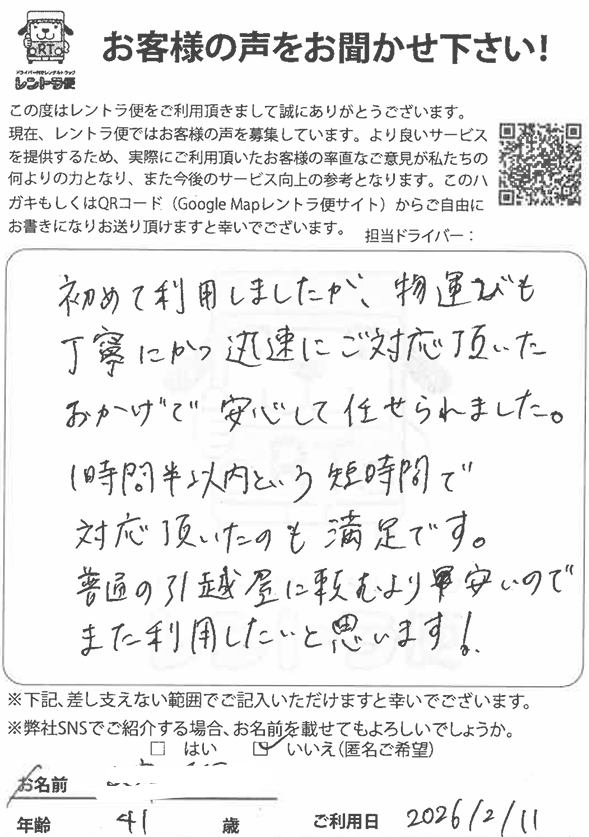 RT
ドライバー付きレンタルトラック
レントラ便
お客様の声をお聞かせ下さい!
この度はレントラ便をご利用頂きまして誠にありがとうございます。
現在、レントラ便ではお客様の声を募集しています。より良いサービス
を提供するため、実際にご利用頂いたお客様の率直なご意見が私たちの
何よりの力となり、また今後のサービス向上の参考となります。このハ
ガキもしくはQRコード（Google Mapレントラ便サイト）からご自由に
お書きになりお送り頂けますと幸いでございます。 担当ドライバー：
初めて利用しましたが、物運びも
丁寧にかつ迅速にご対応頂いた
おかげで安心して任せられました。
1時間半以内という短時間で
対応頂いたのも満足です。
普通の引越屋に頼むより安いので
また利用したいと思います!
※下記、差し支えない範囲でご記入いただけますと幸いでございます。
※弊社SNSでご紹介する場合、お名前を載せてもよろしいでしょうか。
□ はい ☑ いいえ（匿名ご希望）
お名前
年齢 41 歳 ご利用日 2026/2/11